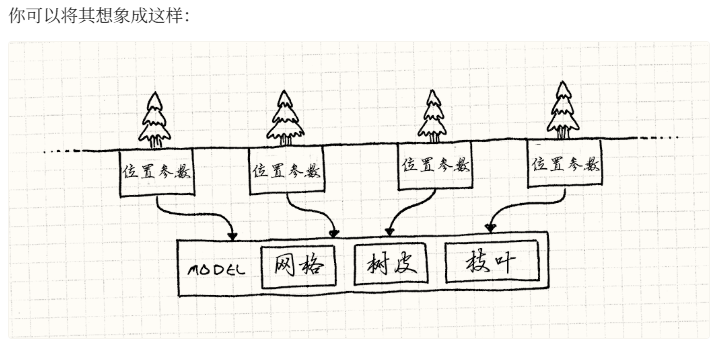 你可以将其想象成这样：
位置参数 位置参数 位置参数 位置参数
MODEL 网格 树皮 枝叶